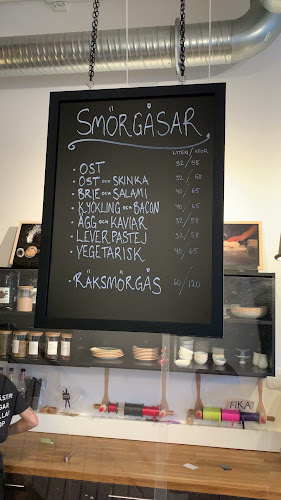 SMÖRGÅSAR
LITEN / STOR
• OST 32/58
• OST OCH SKINKA 32/58
• BRIE OCH SALAMI 40/65
• KYCKLING OCH BACON 40/65
• ÄGG OCH KAVIAR 32/58
• LEVERPASTEJ 32/58
• VEGETARISK 40/65
• RÄKSMÖRGÅS 60/120
FIKA